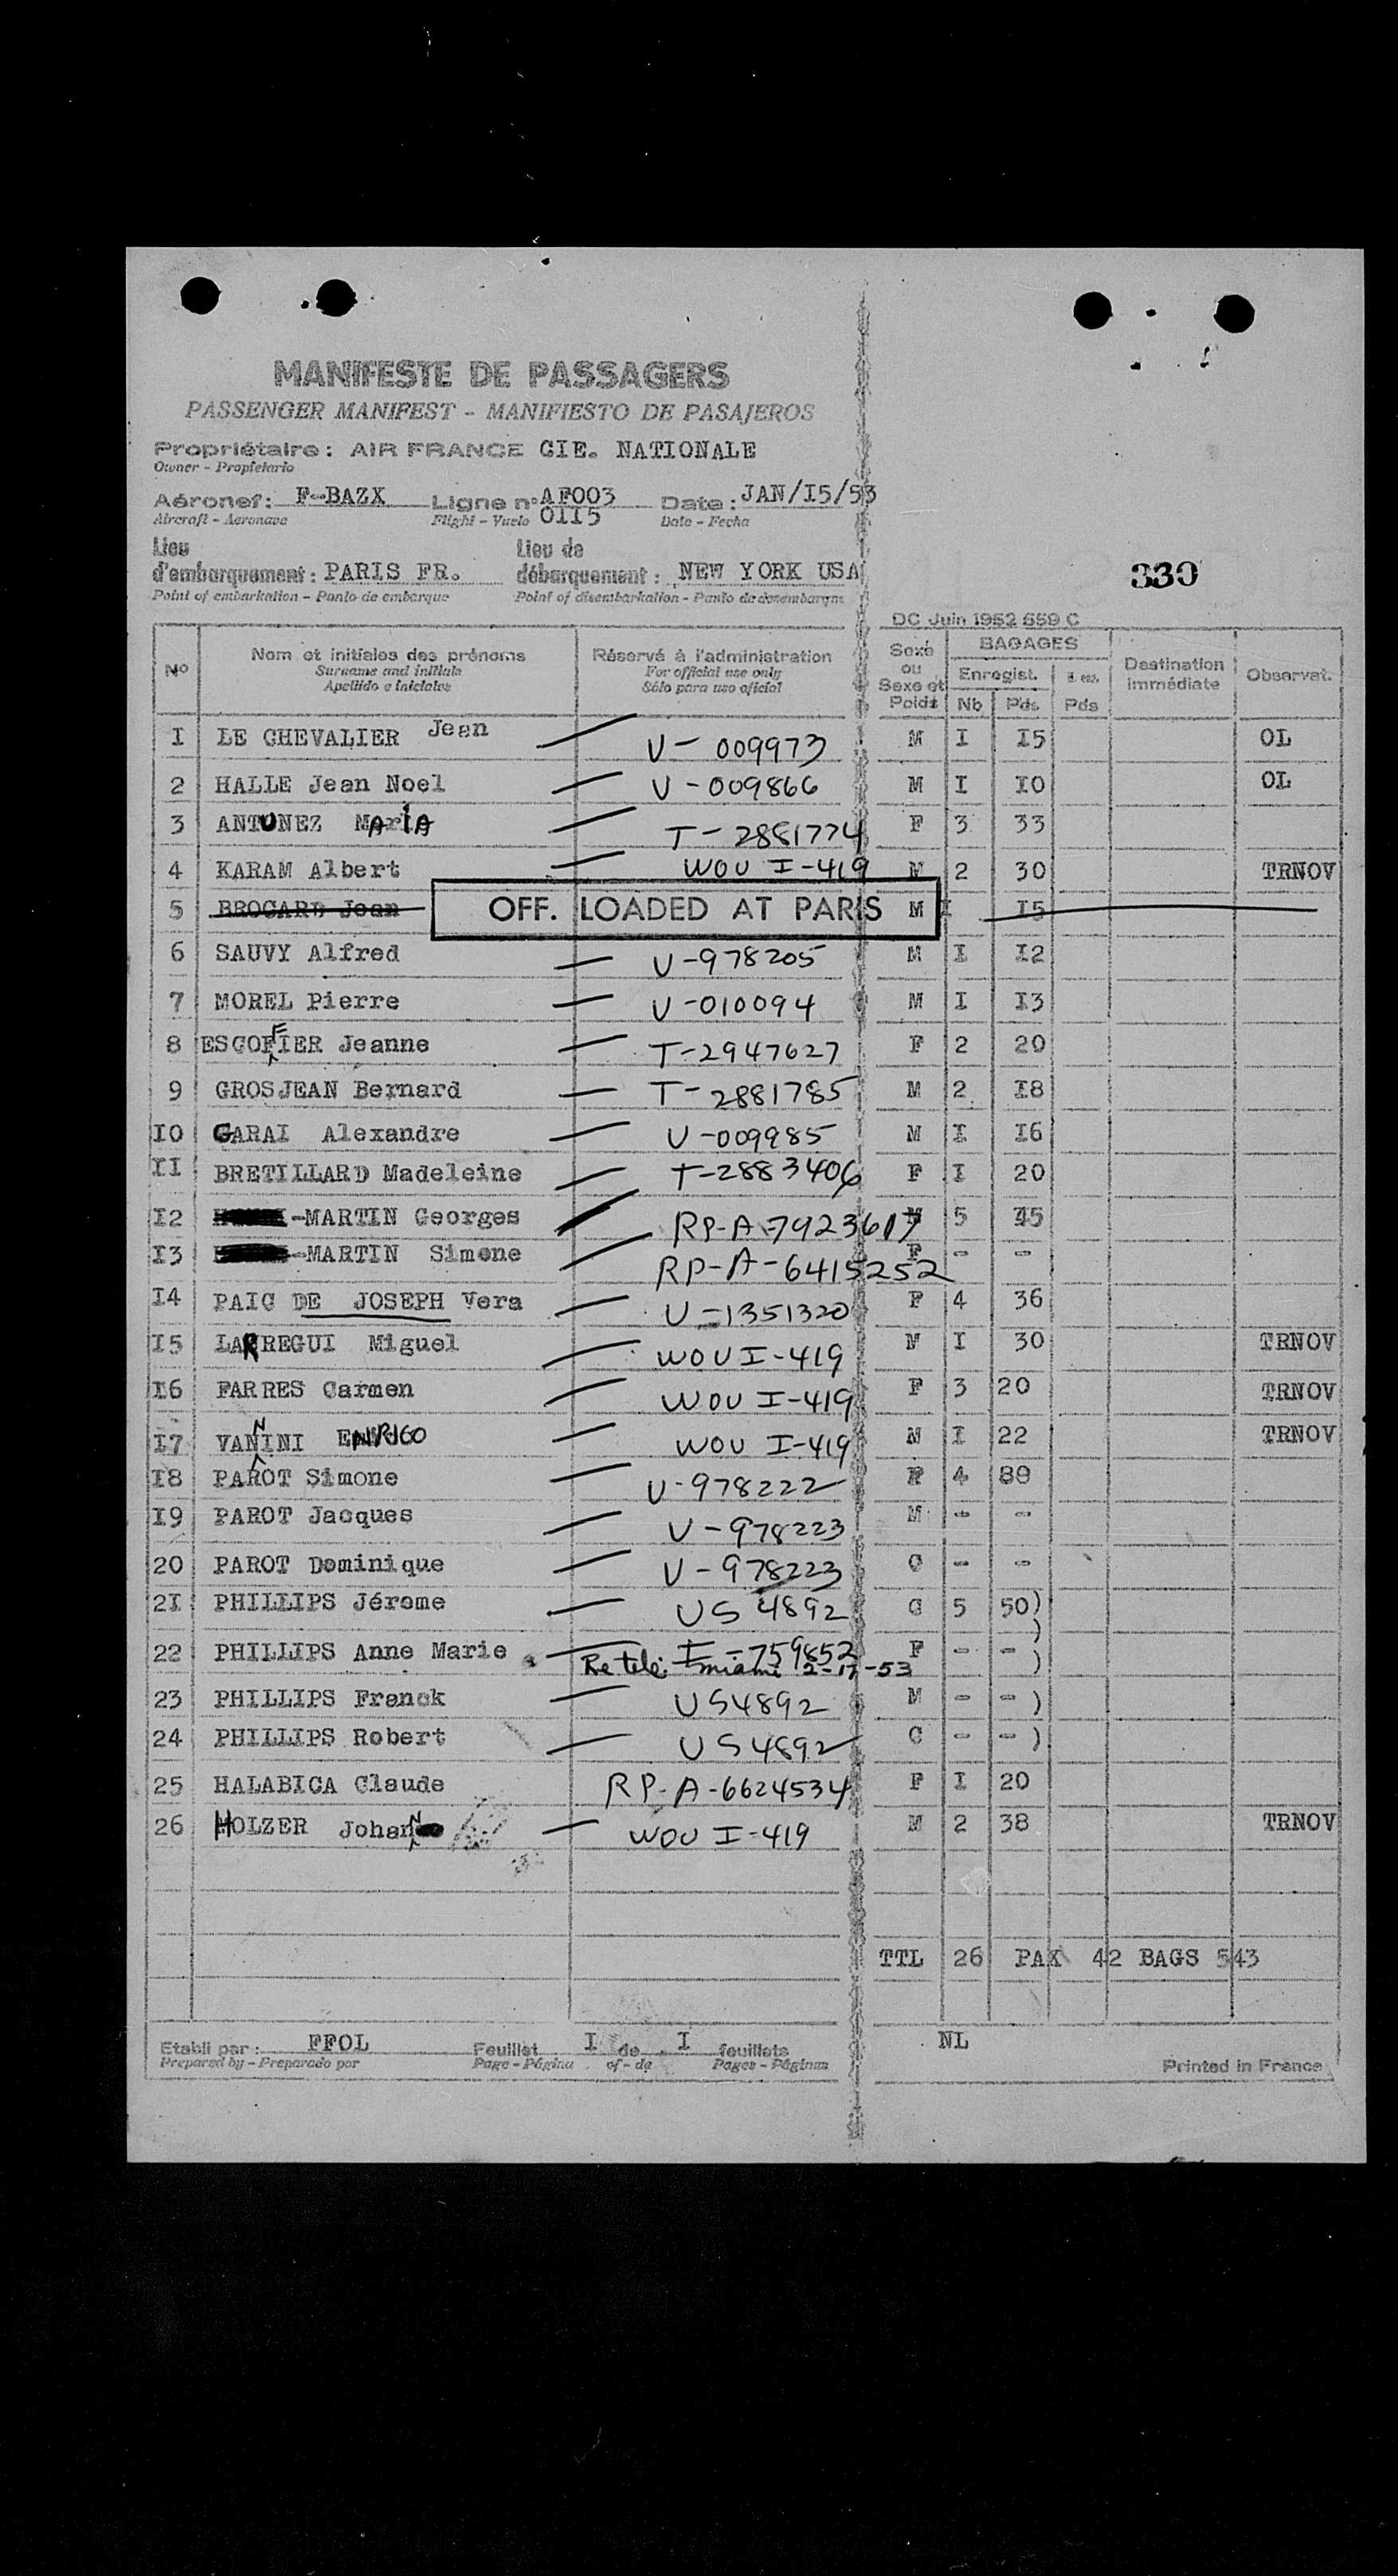 MANIFESTE DE PASSAGERS
PASSENGER MANIFEST - MANIFIESTO DE PASAJEROS
Propriétaire : AIR FRANCE CIE. NATIONALE
Owner - Propietario
Aéronef : F-BAZX Ligne n° AF003 Date : JAN/I5/53
Aircraft - Aeronave Flight - Vuelo 0II5 Date - Fecha
Lieu d'embarquement : PARIS FR. Lieu de débarquement : NEW YORK USA
Point of embarkation - Punto de embarque Point of disembarkation - Punto de desembarque
330
DC Juin 1952 659 C
N° Nom et initiales des prénoms Réservé à l'administration Sexe ou Sexe et Poids BAGAGES Destination immédiate Observat.
Surname and initials For official use only Enregist.
Apellido e iniciales Sólo para uso oficial Nb Pds Pds
I LE CHEVALIER Jean V-009973 M I I5 OL
2 HALLE Jean Noel V-009866 M I I0 OL
3 ANTUNEZ MARIA T-2881774 F 3 33
4 KARAM Albert WOV I-419 M 2 30 TRNOV
5 BROCARD Jean OFF. LOADED AT PARIS M I I5
6 SAUVY Alfred V-978205 M I I2
7 MOREL Pierre V-010094 M I I3
8 ESCOFFIER Jeanne T-2947627 F 2 20
9 GROSJEAN Bernard T-2881785 M 2 I8
I0 GARAI Alexandre V-009985 M I I6
II BRETILLARD Madeleine T-2883406 F I 20
I2 -MARTIN Georges RP-A-7923617 M 5 45
I3 -MARTIN Simone RP-A-6415252 F - -
I4 PAIC DE JOSEPH Vera V-1351320 F 4 36
I5 LARREGUI Miguel WOV I-419 M I 30 TRNOV
I6 FARRES Carmen WOV I-419 F 3 20 TRNOV
I7 VANNINI ENRICO WOV I-419 M I 22 TRNOV
I8 PAROT Simone V-978222 F 4
I9 PAROT Jacques V-978223 M - -
20 PAROT Dominique V-978223 C - -
2I PHILLIPS Jérome US 4892 C 5 50)
22 PHILLIPS Anne Marie I-759852 F - - )
Re tel: Miami 2-17-53
23 PHILLIPS Franck US4892 M - - )
24 PHILLIPS Robert US4892 C - - )
25 HALABICA Claude RP-A-6624534 F I 20
26 HOLZER Johann WOV I-419 M 2 38 TRNOV
TTL 26 PAX 42 BAGS 543
Etabli par : FFOL Feuillet I de I feuillets NL
Prepared by - Preparado por Page - Página of - de Pages - Páginas Printed in France